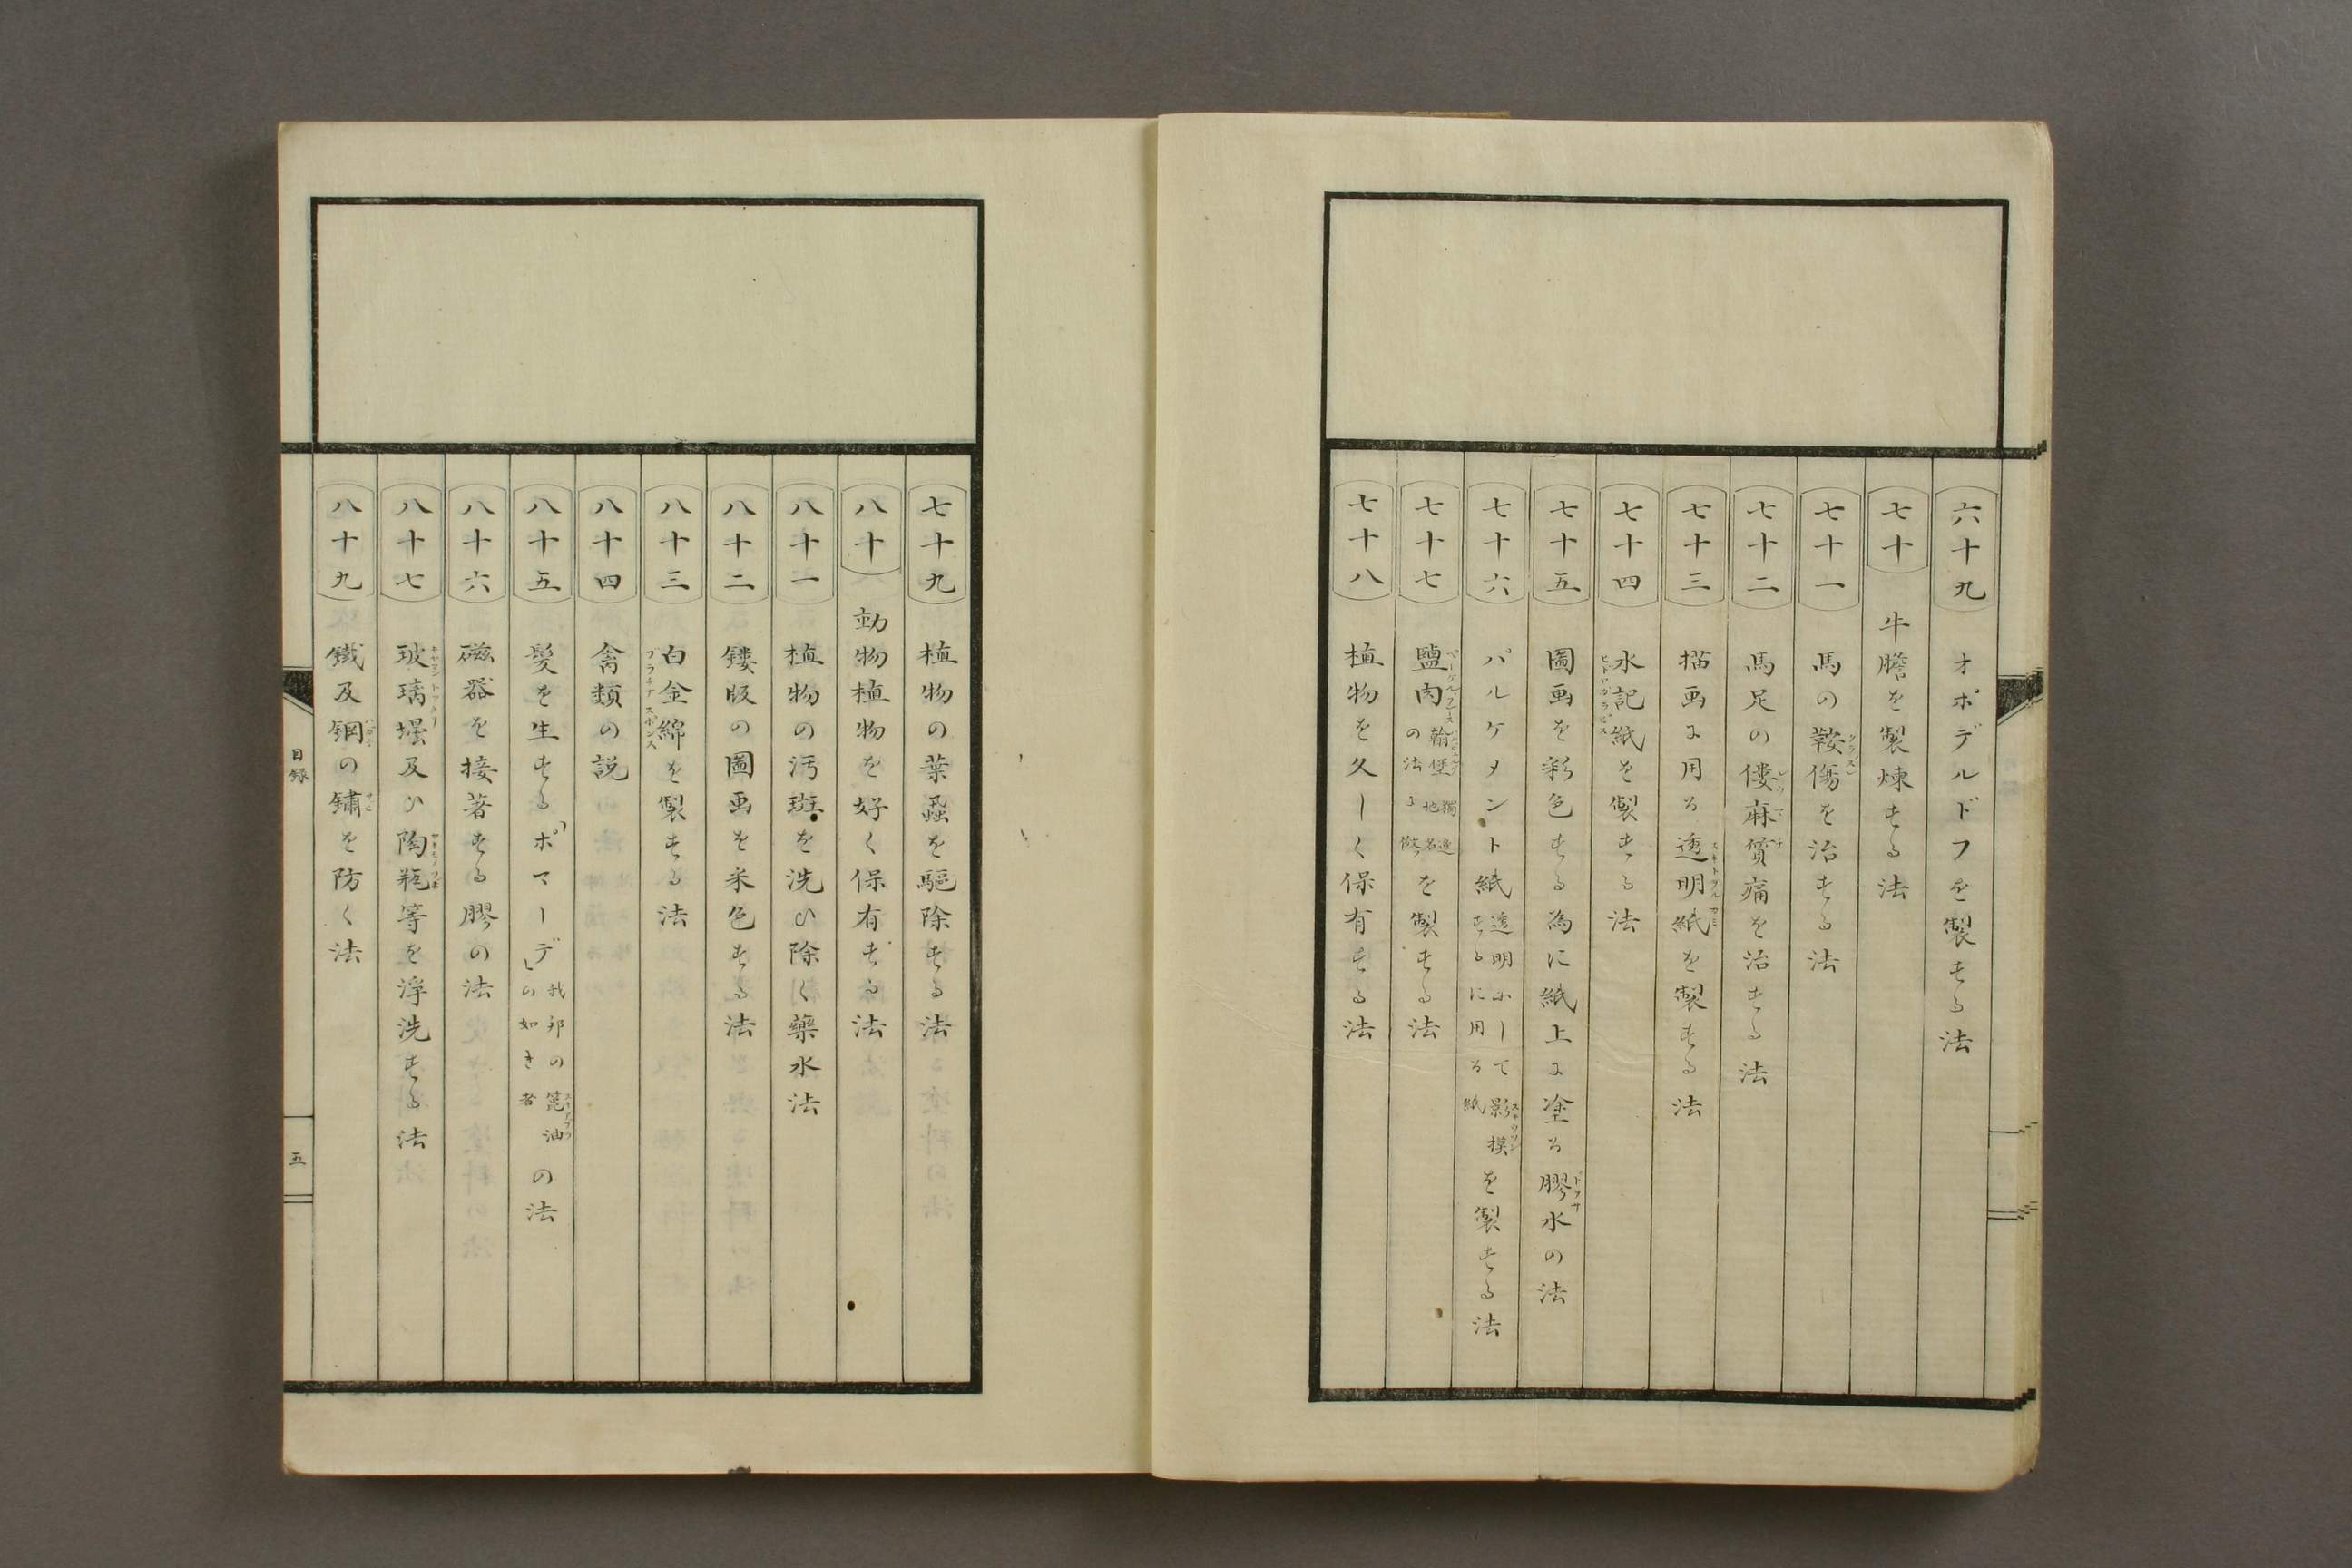 六十九 オポデルドフを製する法
七十 牛膽を製煉する法
七十一 馬の鞍傷を治する法
七十二 馬足の僂麻質痛を治する法
七十三 描画に用る透明紙を製する法
七十四 水記紙を製する法
七十五 圖画を彩色する為に紙上に塗る膠水の法
七十六 パルケメント紙透明にして影摸するに用る紙を製する法
七十七 鹽肉翰堡獨逸地名の法に傚ふを製する法
七十八 植物を久しく保有する法
七十九 植物の葉蟲を驅除する法
八十 動物植物を好く保有する法
八十一 植物の汚斑を洗ひ除く藥水法
八十二 鏤版の圖画を釆色する法
八十三 白金綿を製する法
八十四 禽類の説
八十五 髪を生する「ポマーデ」我邦の鬆油の如き者の法
八十六 磁器を接著する膠の法
八十七 玻璃壜及ひ陶瓶等を浄洗する法
八十九 鐵及鋼の鏽を防く法
目録
五